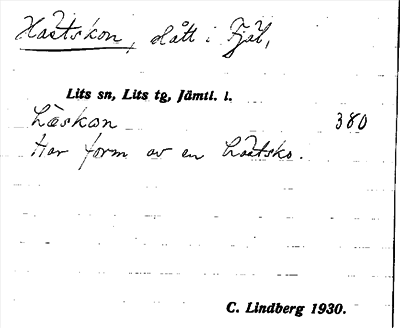 Hästskon, slått i Fjäl,
Lits sn, Lits tg, Jämtl. l.
häskon 380
Har form av en hästsko.
C. Lindberg 1930.